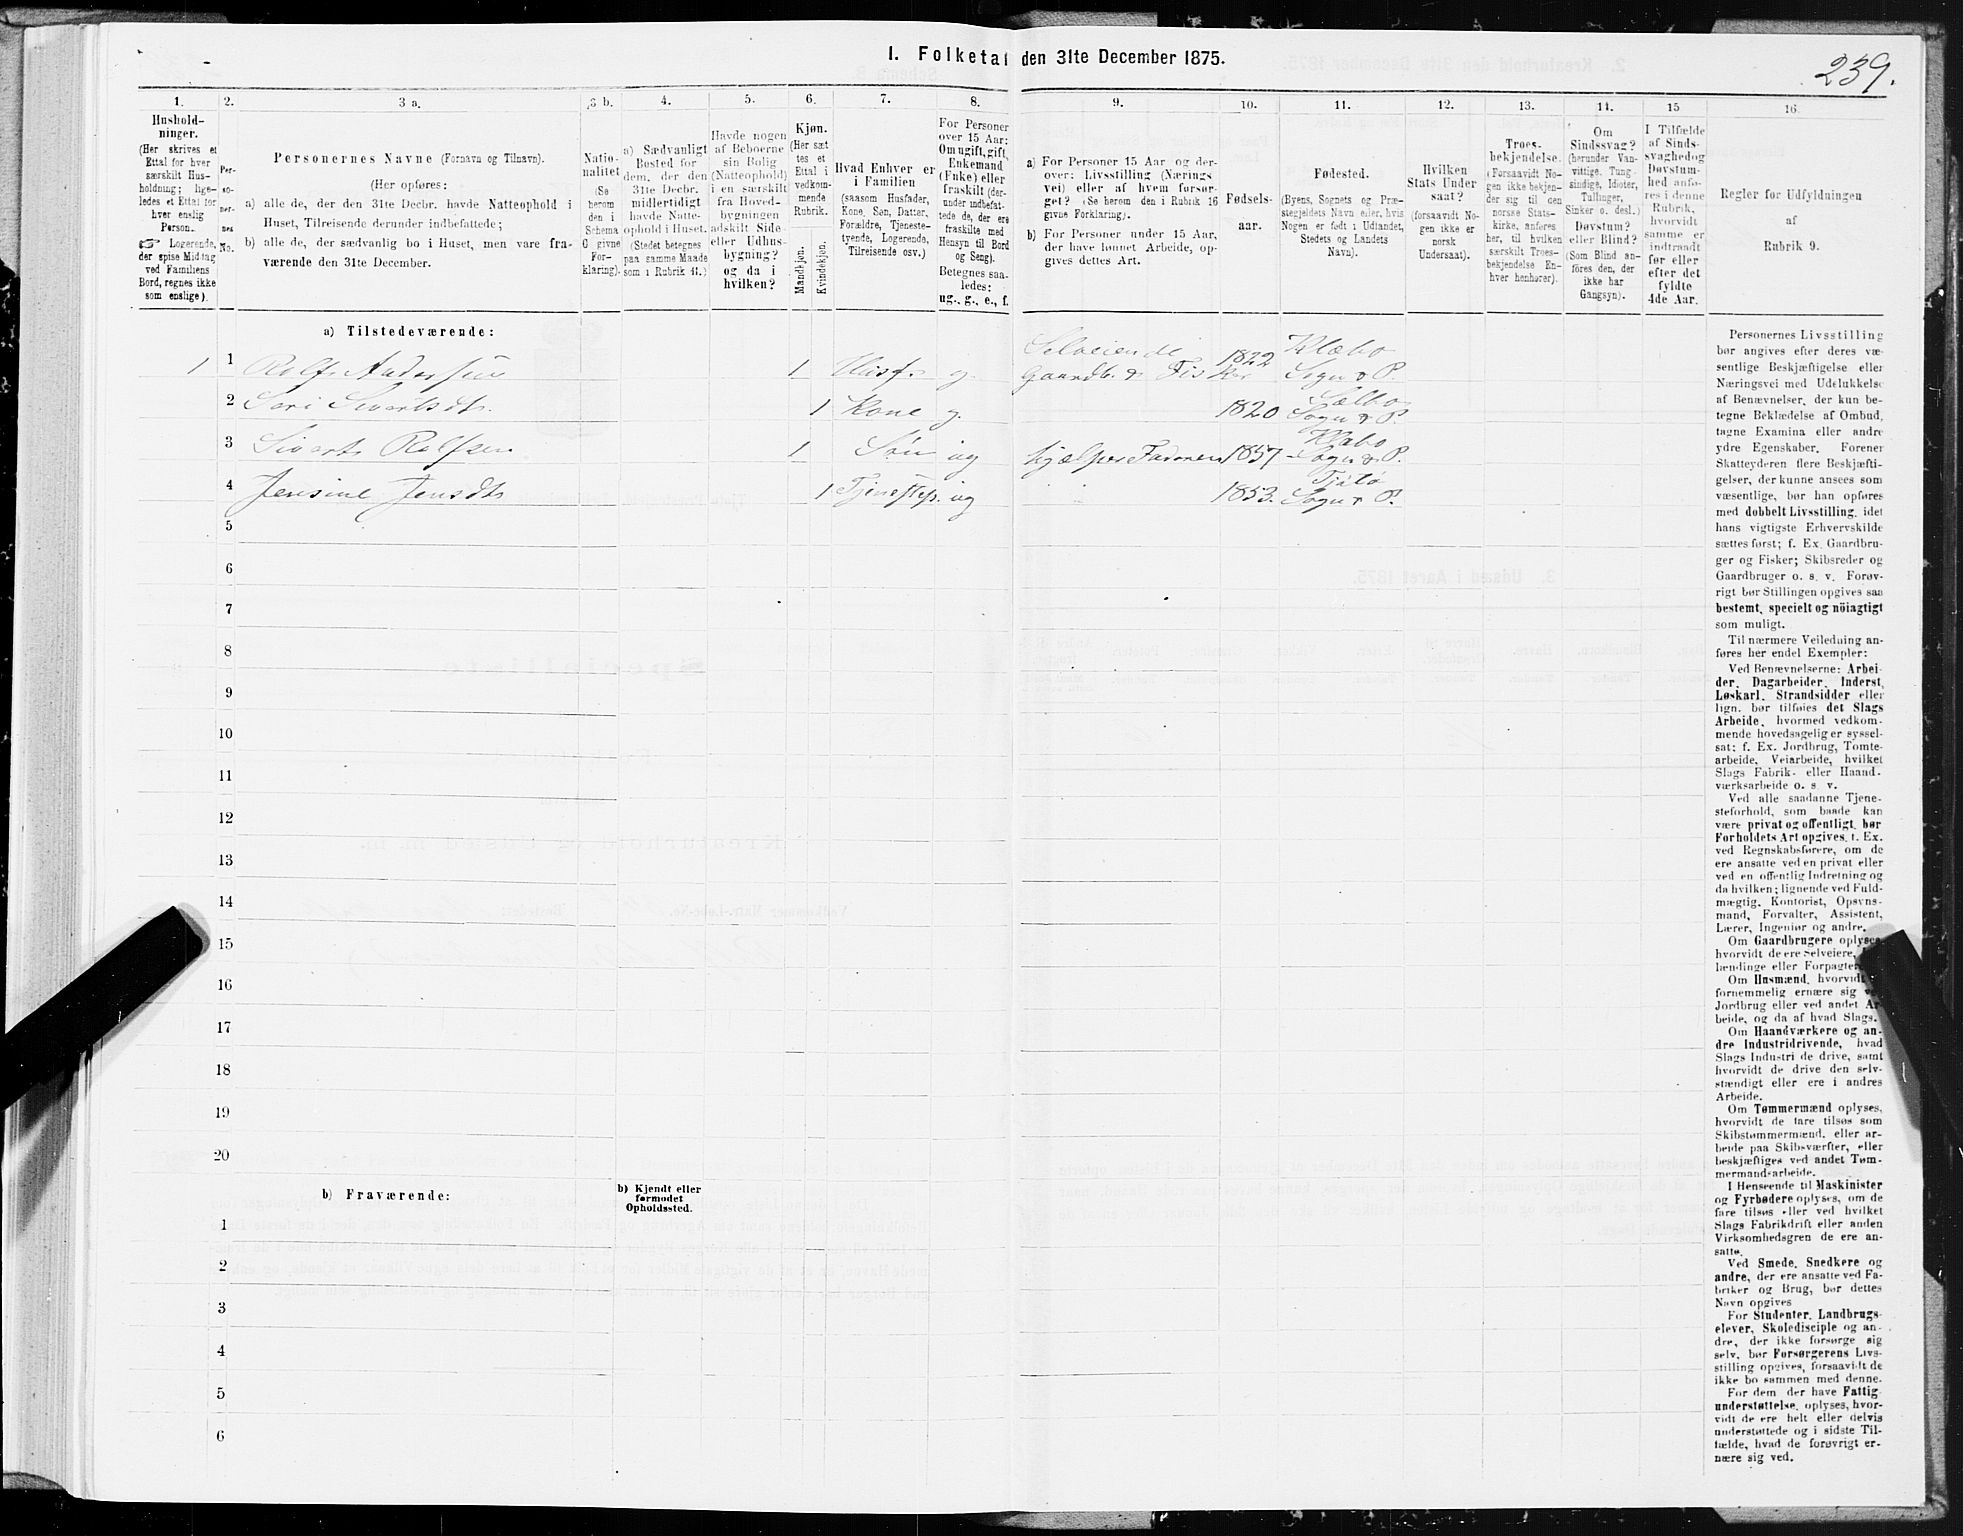 I. Folketal den 31te December 1875.
239.
1.
Hushold-
ninger.
(Her skrives et
Ettal for hver
særskilt Hus-
holdning; lige-
ledes et Ettal for
hver enslig
Person.
☞ Logerende,
der spise Middag
ved Familiens
Bord, regnes ikke
som enslige).
2.
Per-
so-
ner-
nes
No.
3 a.
Personernes Navne (Fornavn og Tilnavn).
(Her opføres:
a) alle de, der den 31te Decbr. havde Natteophold i
Huset, Tilreisende derunder indbefattede;
b) alle de, der sædvanlig bo i Huset, men vare fra-
værende den 31te December.
3 b.
Natio-
nalitet
(Se
herom
den i
Schema
G givne
For-
klaring).
4.
a) Sædvanligt
Bosted for
dem, der den
31te Decbr.
midlertidigt
havde Natte-
ophold i Huset.
(Stedet betegnes
paa samme Maade
som i Rubrik 11.)
5.
Havde nogen
af Beboerne
sin Bolig
(Natteophold)
i en særskilt
fra Hoved-
bygningen
adskilt Side-
eller Udhus-
bygning?
og da i
hvilken?
6.
Kjøn.
(Her sæt
tes et
Ettal i
vedkom-
mende
Rubrik.
Mandkjøn.
Kvindekjøn.
7.
Hvad Enhver er
i Familien
(saasom Husfader,
Kone, Søn, Datter,
Forældre, Tjeneste-
tyende, Logerende,
Tilreisende osv.)
8.
For Personer
over 15 Aar:
Om ugift, gift,
Enkemand
(Enke) eller
fraskilt (der-
under indbefat-
tede de, der ere
fraskilte med
Hensyn til Bord
og Seng).
Betegnes saa-
ledes:
ug., g., e., f.
9.
a) For Personer 15 Aar og der-
over: Livsstilling (Nærings
vei) eller af hvem forsør-
get? (Se herom den i Rubrik 16
givne Forklaring).
b) For Personer under 15 Aar,
der have lønnet Arbeide, op-
gives dettes Art.
10.
Fødsels-
aar.
11.
Fødested.
(Byens, Sognets og Præ-
stegjeldets Navn eller, hvis
Nogen er født i Udlandet,
Stedets og Landets
Navn).
12.
Hvilken
Stats Under
saat?
(forsaavidt No-
gen ikke er
norsk
Undersaat).
13.
Troes-
bekjendelse.
(Forsaavidt No-
gen ikke bekjen-
der sig til den
norske Stats-
kirke, anføres
her, til hvilken
særskilt Troes-
bekjendelse En-
hver henhører).
14.
Om
Sindssvag?
(herunder Van-
vittige, Tung-
sindige, Idioter,
Tullinger,
Sinker o. desl.)
Døvstum?
eller Blind?
(Som Blind an-
føres den, der
ikke har
Gangsyn).
15
I Tilfælde
af Sinds-
svaghed og
Døvstum-
hed anfø-
res i denne
Rubrik,
hvorvidt
samme er
indtraadt
før eller
efter det
fyldte
4de Aar.
16.
Regler for Udfyldningen
af
Rubrik 9.
a) Tilstedeværende:
1 1 Rolf Andersen 1 Husf. g. Selveiende
Gaardb. & Fisker 1822 Klæbo
Sogn & P.
2 Seri Sivertsdt. 1 Kone g. 1820 Sælbo
Sogn & P.
3 Sivert Rolfsen 1 Søn ug hjælper Faderen 1857 Klæbo
Sogn & P.
4 Jensine Jensdt 1 Tjenestep. ug 1853. Tjøtø
Sogn & P.
5
6
7
8
9
10
11
12
13
14
15
16
17
18
19
20
b) Fraværende:
b) Kjendt eller
formodet
Opholdssted.
1
2
3
4
5
6
Personernes Livsstilling
bør angives efter deres væ-
sentlige Beskjæftigelse eller
Næringsvei med Udelukkelse
af Benævnelser, der kun be-
tegne Beklædelse af Ombud,
tagne Examina eller andre
ydre Egenskaber. Forener
Skatteyderen flere Beskjæfti-
gelser, der kunne ansees som
væsentlige, bør han opføres
med dobbelt Livsstilling, idet
hans vigtigste Erhvervskilde
sættes først; f. Ex. Gaardbru-
ger og Fisker; Skibsreder og
Gaardbruger o. s. v. Forøv-
rigt bør Stillingen opgives saa
bestemt, specielt og nöiagtigt
som muligt.
Til nærmere Veiledning an-
føres her endel Exempler:
Ved Benævnelserne: Arbei-
der, Dagarbeider, Inderst,
Løskarl, Strandsidder eller
lign. bør tilføies det Slags
Arbeide, hvormed vedkom-
mende hovedsagelig er syssel-
sat; f. Ex. Jordbrug, Tomte-
arbeide, Veiarbeide, hvilket
Slags Fabrik- eller Haand-
værksarbeide o. s. v.
Ved alle saadanne Tjene-
steforhold, som baade kan
være privat og offentligt, bør
Forholdets Art opgives, f. Ex.
ved Regnskabsførere, om de
ere ansatte ved en privat eller
ved en offentlig Indretning og
da hvilken; lignende ved Fuld-
mægtig, Kontorist, Opsyns-
mand, Forvalter, Assistent,
Lærer, Ingeniør og andre.
Om Gaardbrugere oplyses,
hvorvidt de ere Selveiere,
lændinge eller Forpagtere
Om Husmænd, hvorvidt
fornemmelig ernære sig ved
Jordbrug eller ved andet Ar-
beide, og da af hvad Slags.
Om Haandværkere og an-
dre Industridrivende, hvad
Slags Industri de drive, samt
hvorvidt de drive den selv-
stændigt eller ere i andres
Arbeide.
Om Tømmermænd oplyses,
hvorvidt de fare tilsøs som
Skibstømmermænd, eller ar-
beide paa Skibsværfter, eller
beskjæftiges ved andet Tøm-
mermandsarbeide.
I Henseende til Maskinister
og Fyrbødere oplyses, om de
fare tilsøs eller ved hvilket
Slags Fabrikdrift eller anden
Virksomhedsgren de ere an-
satte.
Ved Smede, Snedkere og
andre, der ere ansatte ved Fa-
briker og Brug, bør dettes
Navn opgives
For Studenter, Landbrugs-
elever, Skoledisciple og an-
dre, der ikke forsørge sig
selv, bør Forsørgerens Livs-
stilling opgives, forsaavidt de
ikke bo sammen med denne.
For dem, der have Fattig-
understøttelse, oplyses, hvor-
vidt de ere helt eller delvis
understøttede og i sidste Til-
fælde, hvad de forøvrigt er-
nære sig ved.